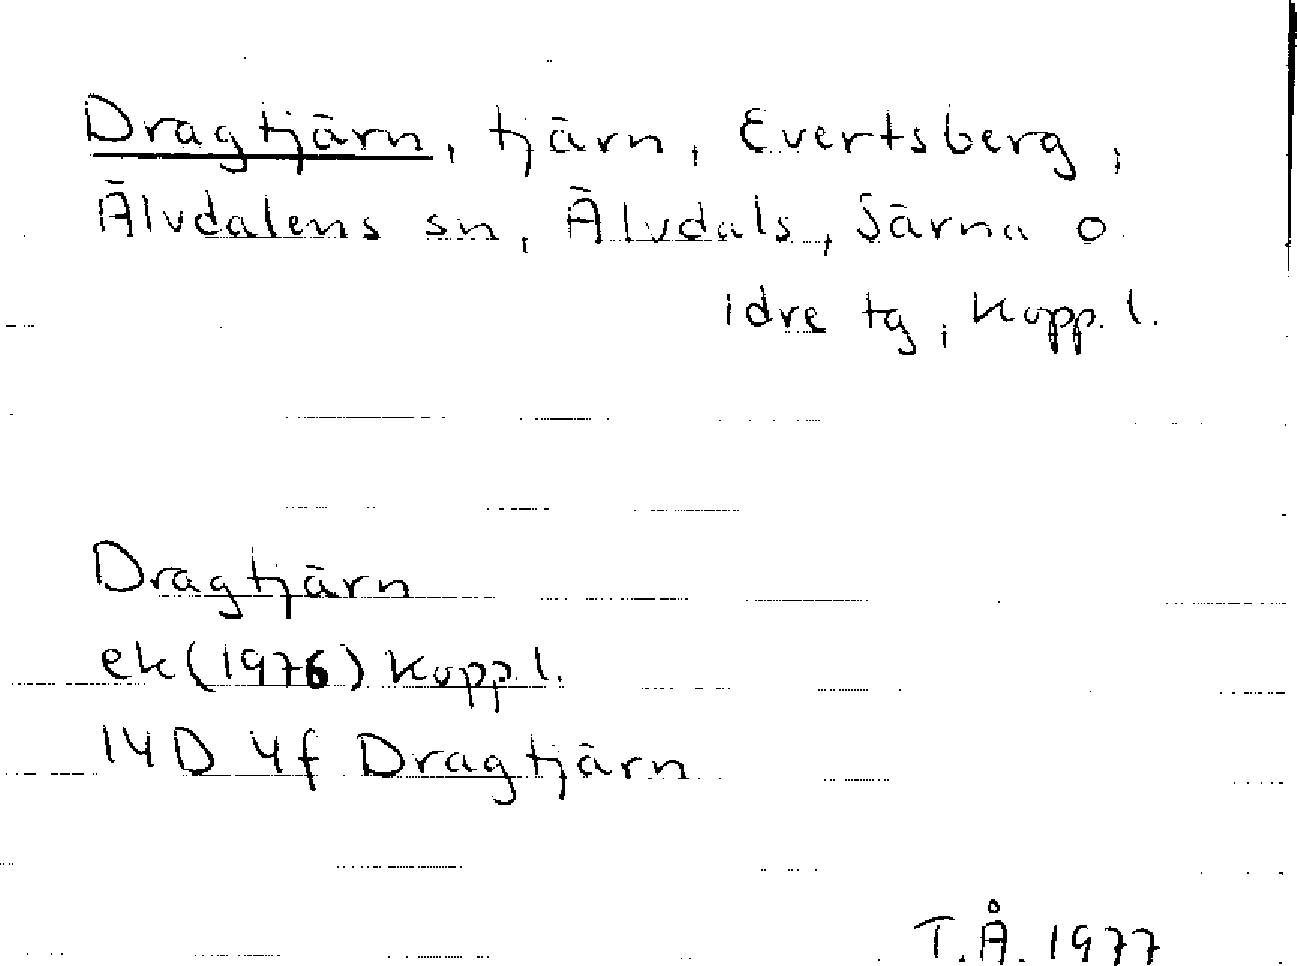 Dragtjärn, tjärn, Evertsberg,
Älvdalens sn, Älvdals, Särna o
idre tg, Kopp. l.
Dragtjärn
ek(1976) Kopp l.
14D 4f Dragtjärn
T.Å. 1977